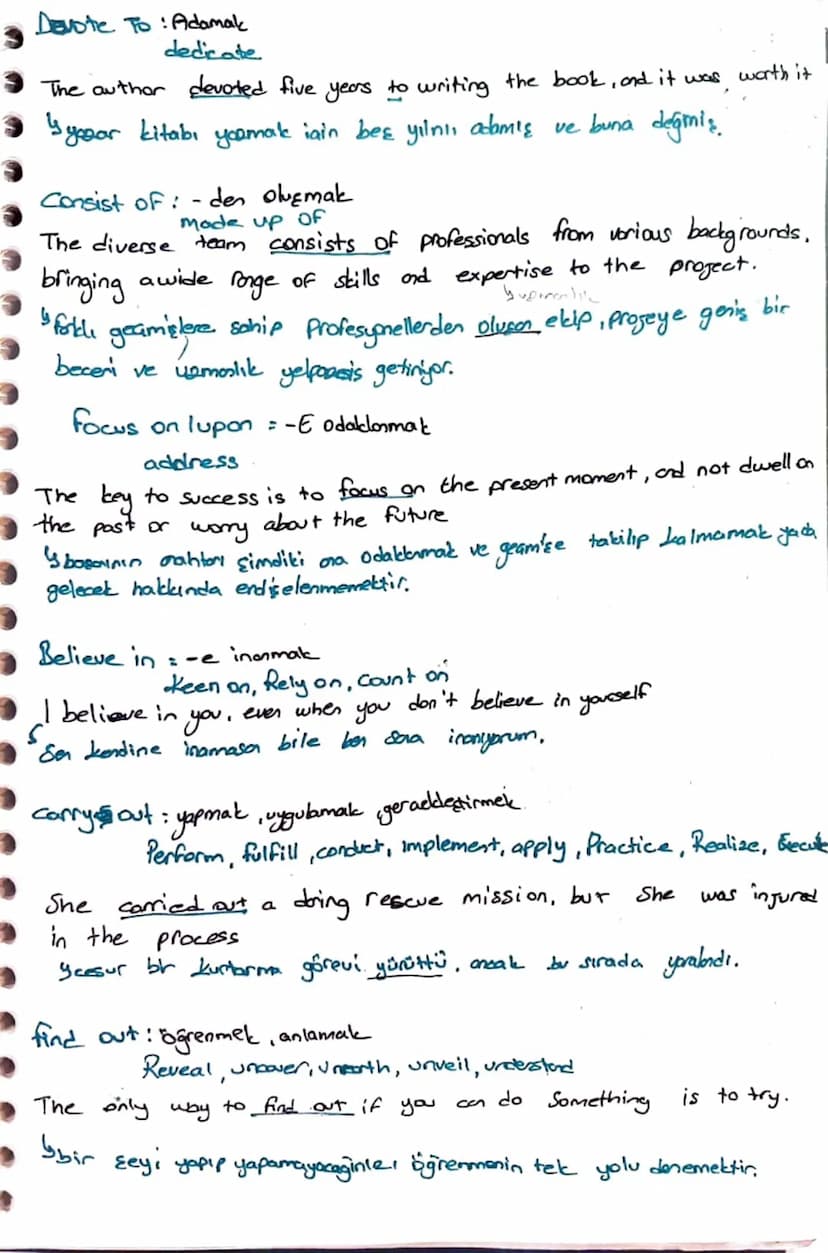 Devote To : Adamak
dedicate
The author devoted five years to writing the book, and it was worth it
yazar kitabı yazmak için beş yılını adamış ve buna değmiş.
Consist of : - den oluşmak
made up of
The diverse team consists of professionals from various backgrounds,
bringing a wide range of skills and expertise to the project.
uzmanlık
farklı geçmişlere sahip profesyonellerden oluşan ekip, projeye geniş bir
beceri ve uzmanlık getiriyor.
Focus on / upon : -E odaklanmak
address
The key to success is to focus on the present moment, and not dwell on
the past or worry about the future
başarının anahtarı şimdiki ana odaklanmak ve geçmişe takılıp kalmamak yada
gelecek hakkında endişelenmemektir.
Believe in : -e inanmak
Keen on, Rely on, Count on
I believe in you, even when you don't believe in yourself
Sen kendine inamasan bile ben sana inanıyorum.
Carry out : yapmak, uygulamak, gerçekleştirmek
Perform, fulfill, conduct, implement, apply, Practice, Realize, Execute
She carried out a daring rescue mission, but she was injured
in the process
cesur bir kurtarma görevi yürüttü, ancak bu sırada yaralandı.
find out : öğrenmek, anlamak
Reveal, uncover, unearth, unveil, understand
The only way to find out if you can do something is to try.
bir şeyi yapıp yapamayacağınızı öğrenmenin tek yolu denemektir.